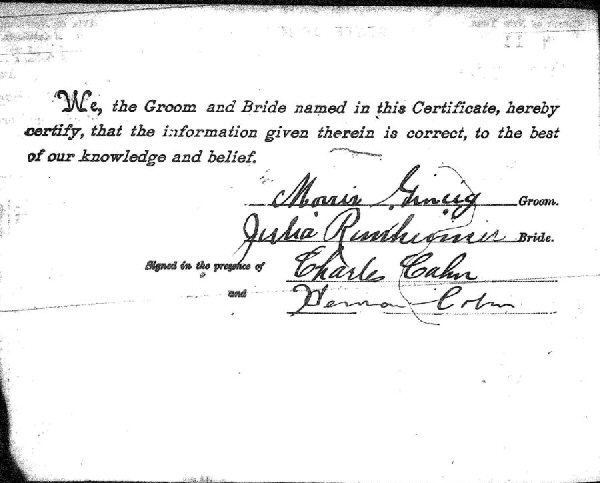 We, the Groom and Bride named in this Certificate, hereby
certify, that the information given therein is correct, to the best
of our knowledge and belief.
Morris Groom.
Julia Bride.
Signed in the presence of Charles Cahn
and Herman Cohn